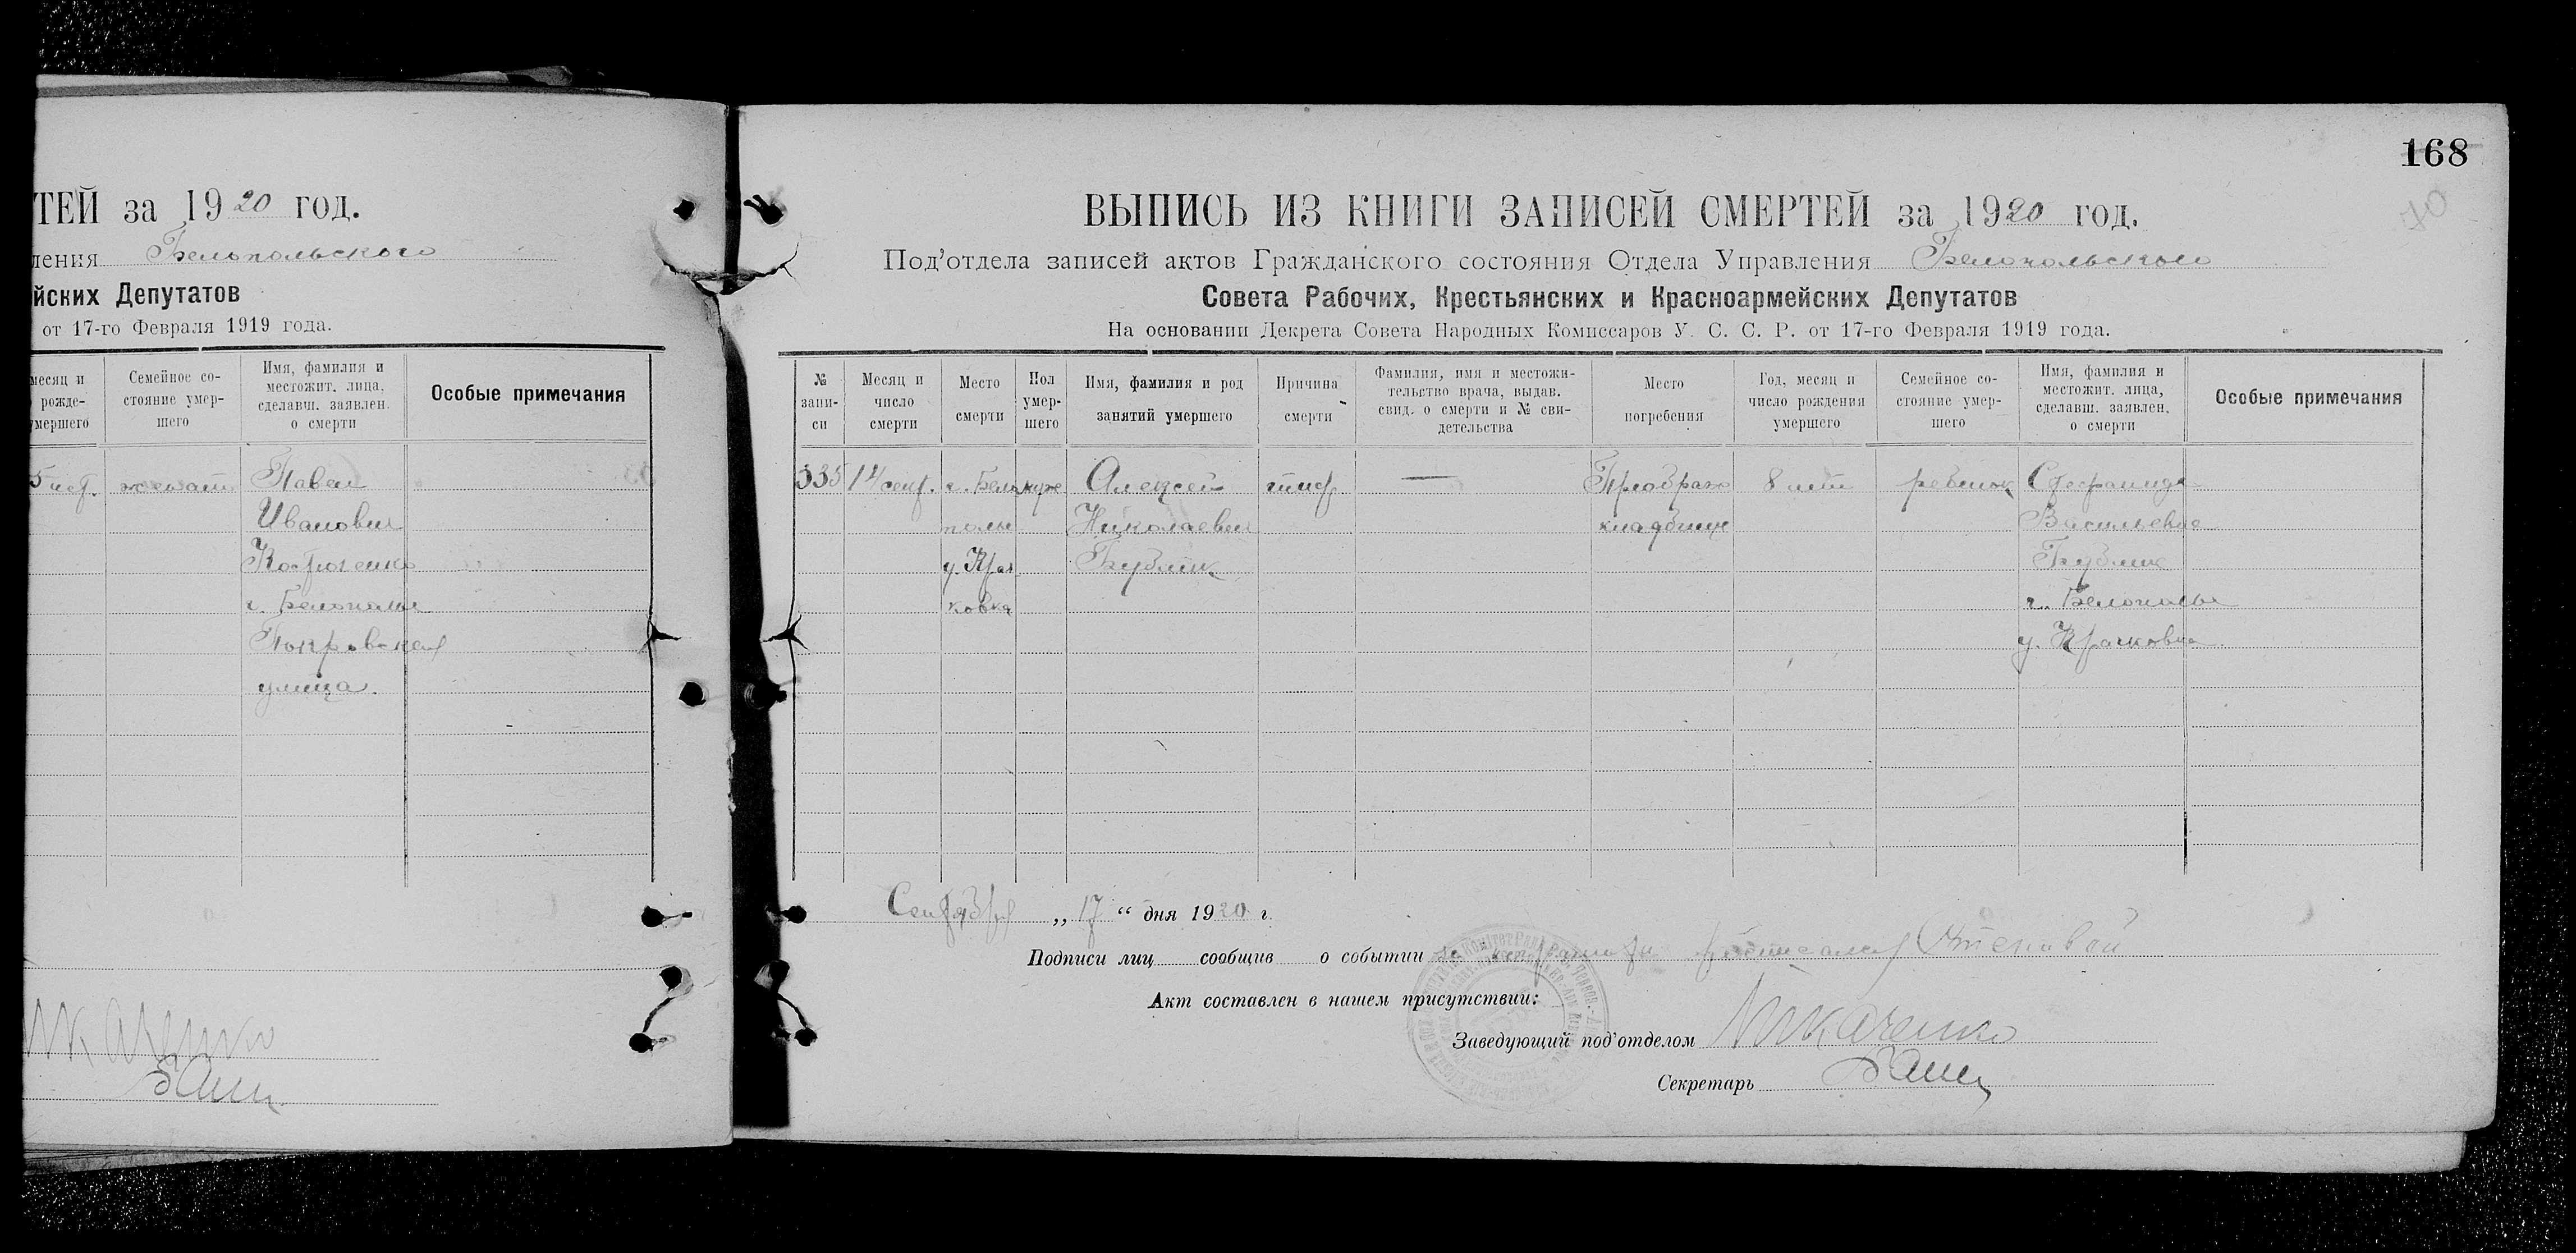 ТЕЙ за 1920 год.
ления Белопольского
йских Депутатов
от 17-го Февраля 1919 года.
месяц и
рожде-
умершего
Семейное со-
стояние умер-
шего
Имя, фамилия и
местожит. лица,
сделавш. заявлен.
о смерти
Особые примечания
женат
Павел
Иванович
г. Белополье
Покровская
улица.
168
70
ВЫПИСЬ ИЗ КНИГИ ЗАПИСЕЙ СМЕРТЕЙ за 1920 год.
Под'отдела записей актов Гражданского состояния Отдела Управления Белопольского
Совета Рабочих, Крестьянских и Красноармейских Депутатов
На основании Декрета Совета Народных Комиссаров У. С. С. Р. от 17-го Февраля 1919 года.
№
запи-
си
Месяц и
число
смерти
Место
смерти
Пол
умер-
шего
Имя, фамилия и род
занятий умершего
Причина
смерти
Фамилия, имя и местожи-
тельство врача, выдав.
свид. о смерти и № сви-
детельства
Место
погребения
Год, месяц и
число рождения
умершего
Семейное со-
стояние умер-
шего
Имя, фамилия и
местожит. лица,
сделавш. заявлен.
о смерти
Особые примечания
335
14 сент.
г. Бело
полье
у. Крач
ковка
муж
Алексей
Николаевич
Бублик
тиф
—
Преображ
кладбище
8 лет
ребенок
Васильевна
Бублик
г. Белополье
у. Крачковка
Сентября „ 17 “ дня 1920 г.
Подписи лиц сообщив о событии
Акт составлен в нашем присутствии:
Заведующий под'отделом
Секретарь